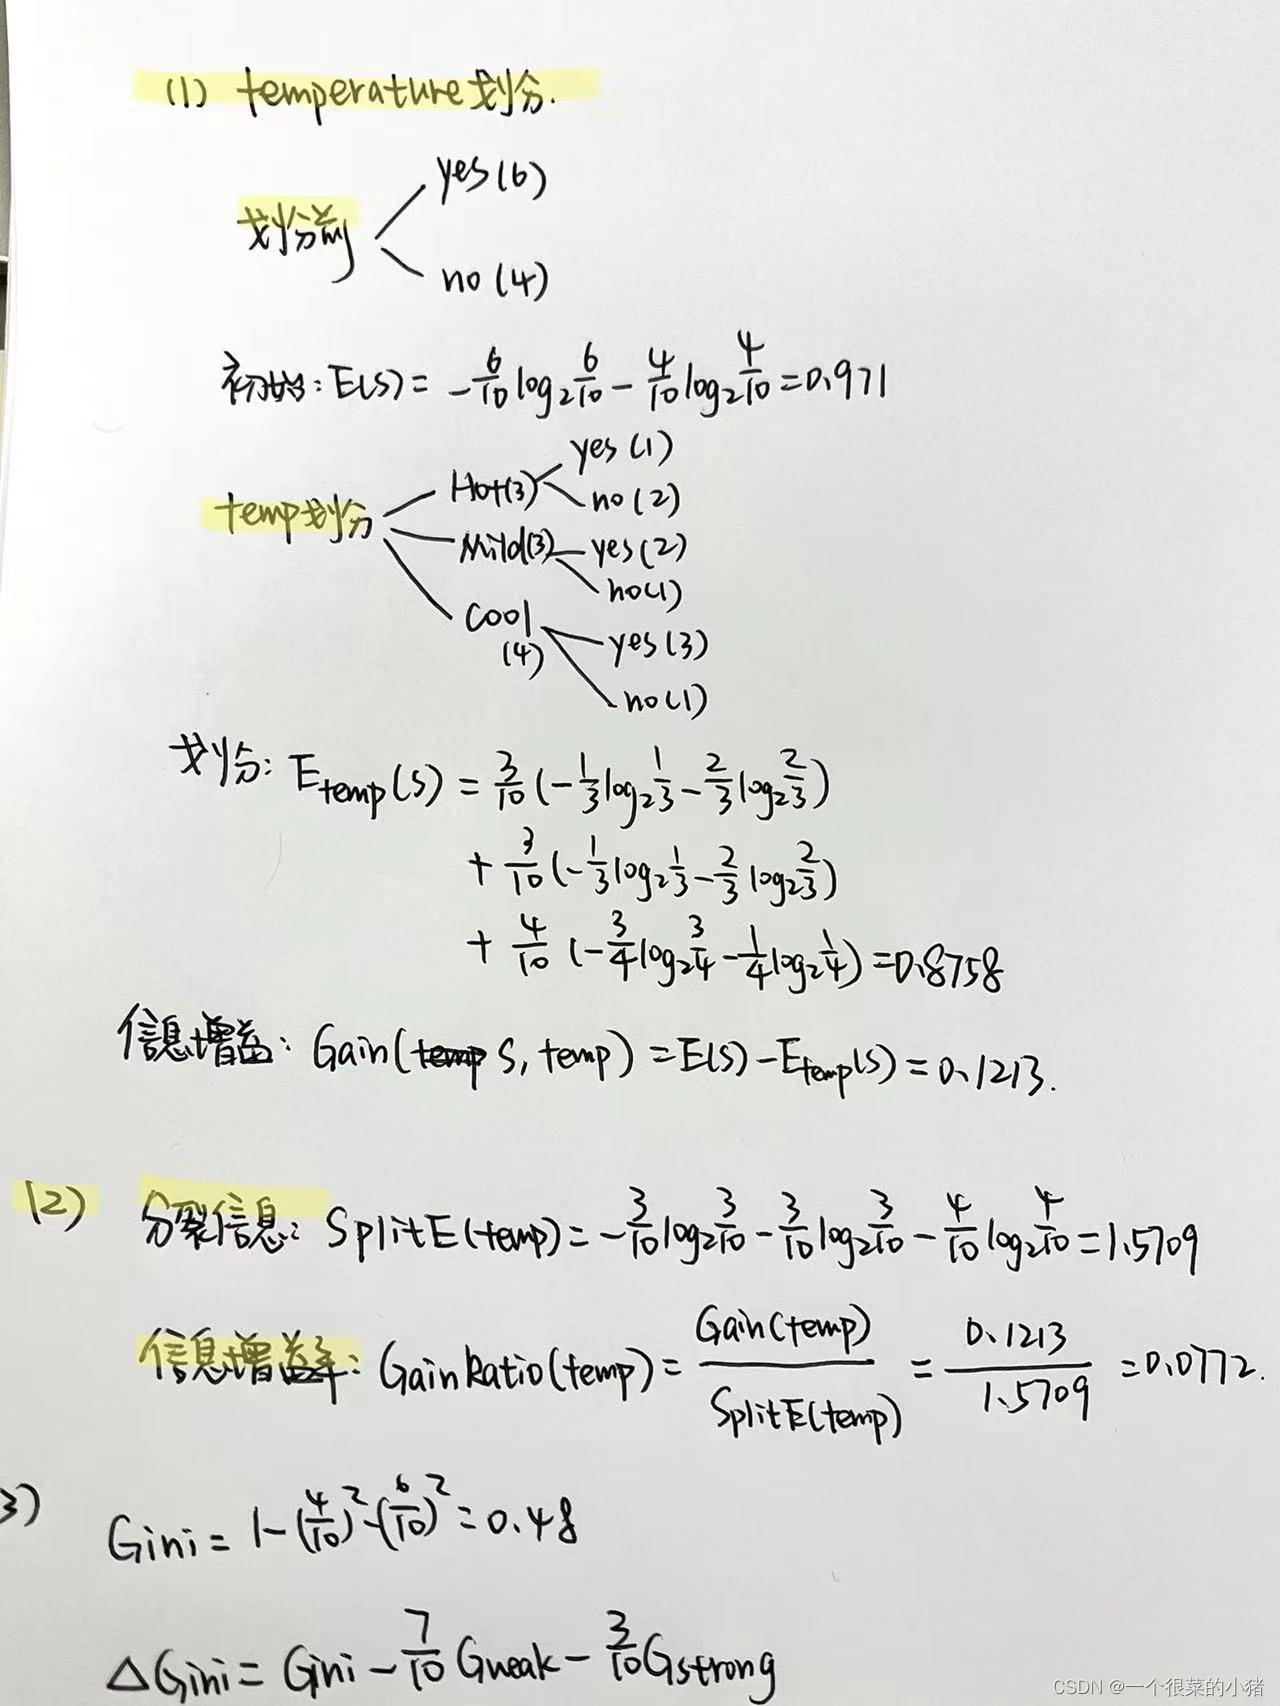 (1) temperature划分.
yes(6)
划分前
no(4)
初始: E(S) = -6/10 log₂ 6/10 - 4/10 log₂ 4/10 = 0.971
yes(1)
Hot(3)
no(2)
temp划分
Mild(3)
yes(2)
no(1)
cool
(4)
yes(3)
no(1)
划分: E_temp(S) = 3/10 (-1/3 log₂ 1/3 - 2/3 log₂ 2/3)
+ 3/10 (-1/3 log₂ 1/3 - 2/3 log₂ 2/3)
+ 4/10 (-3/4 log₂ 3/4 - 1/4 log₂ 1/4) = 0.8758
信息增益: Gain(temp S, temp) = E(S) - E_temp(S) = 0.1213.
(2) 分裂信息: SplitE(temp) = -3/10 log₂ 3/10 - 3/10 log₂ 3/10 - 4/10 log₂ 4/10 = 1.5709
信息增益率: GainRatio(temp) = Gain(temp) / SplitE(temp) = 0.1213 / 1.5709 = 0.0772.
3) Gini = 1 - (4/10)² - (6/10)² = 0.48
△Gini = Gini - 7/10 Gweak - 3/10 Gstrong
CSDN @一个很菜的小猪